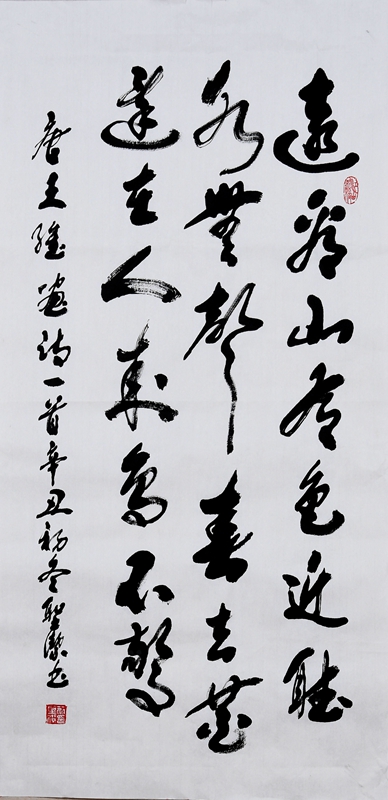 遠看山有色近聽
水無聲春去花
還在人來鳥不驚
唐王維畫詩一首辛丑初冬聖潔书